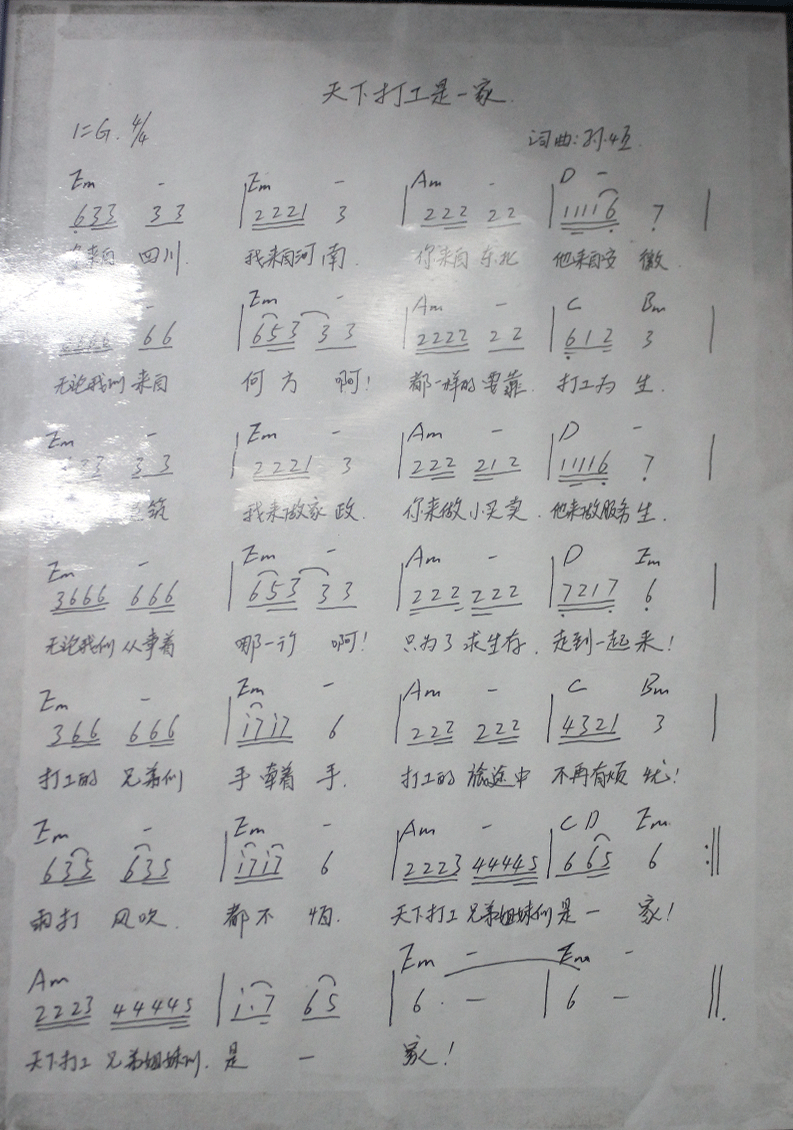 天下打工是一家.
1=G. 4/4 词曲:孙恒.
Em - | Em - | Am - | D -
633 33 | 2221 3 | 222 22 | 11116 7 |
来自 四川. 我来自河南. 你来自东北 他来自安徽
- | Em - | Am - | C Bm
66 | 653 33 | 2222 22 | 612 3 |
无论我们来自 何方 啊! 都一样的要靠. 打工为生.
Em - | Em - | Am - | D -
33 | 2221 3 | 222 212 | 1116 7 |
筑 我来做家政. 你来做小买卖. 他来做服务生.
Em - | Em - | Am - | D Em
3666 666 | 653 33 | 222 222 | 7217 6 |
无论我们从事着 哪一行 啊! 只为了求生存. 走到一起来!
Em - | Em - | Am - | C Bm
366 666 | i7i7 6 | 222 222 | 4321 3 |
打工的 兄弟们 手牵着手. 打工的旅途中 不再有烦忧!
Em - | Em - | Am - | C D Em
635 635 | i7i7 6 | 2223 44445 | 665 6 :||
雨打 风吹. 都不怕. 天下打工兄弟姐妹们是一 家!
Am | Em - | Em -
2223 44445 | i·7 65 | 6 · - | 6 - ||.
天下打工 兄弟姐妹们. 是 一 家!